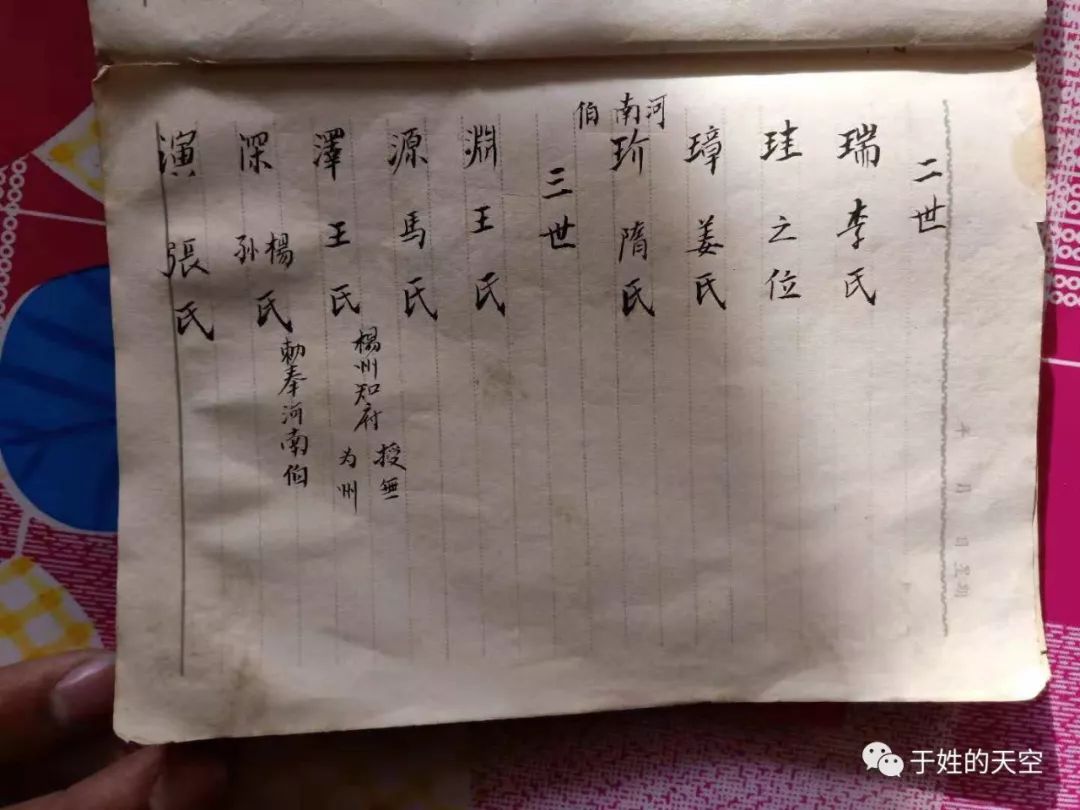 二世
瑞 李氏
珪之位
璋 姜氏
河南伯
珍 隋氏
三世
淵 王氏
源 馬氏
澤 王氏
楊州知府
授無
为州
深 楊孫氏
勅奉河南伯
演 張氏
年 月 日 星期
于姓的天空